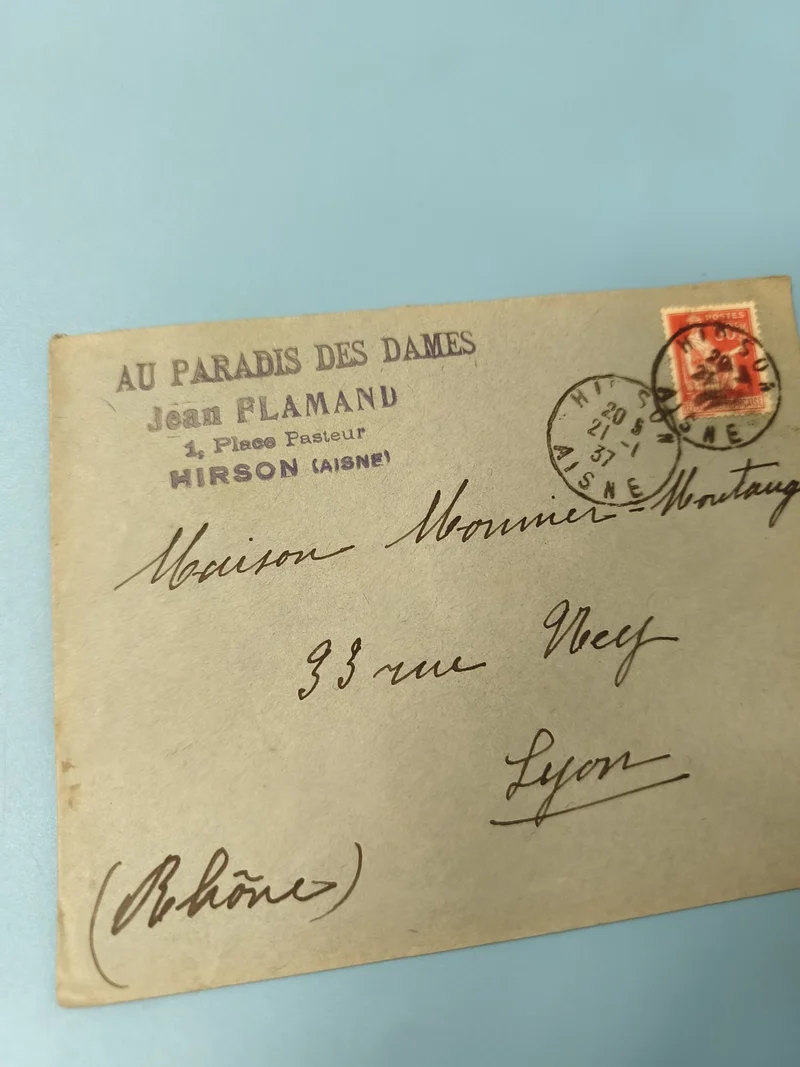 AU PARADIS DES DAMES
Jean FLAMAND
1, Place Pasteur
HIRSON (AISNE)
POSTES
HIRSON
20
AISNE
HIRSON
20
21 -1
37
AISNE
Maison Monnier-
33 rue Ney
Lyon
(Rhône)